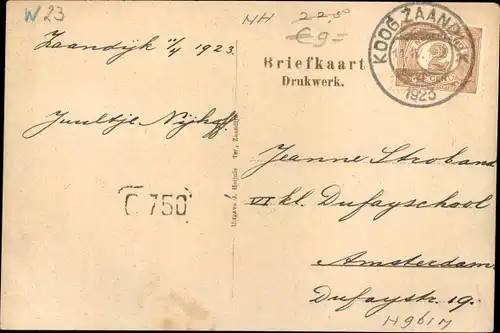 W 23
NH 22,50
€ 9=
Zaandijk 11/4 1923.
KOOG ZAANDIJK
1923
2
CENT
Briefkaart
Drukwerk.
Juultje Nijhoff.
C 750
Uitgave J. Heijnis Tsz., Zaandijk
Jeanne Stroband
VI kl. Dufayschool
Amsterdam
Dufaystr. 19.
H9617